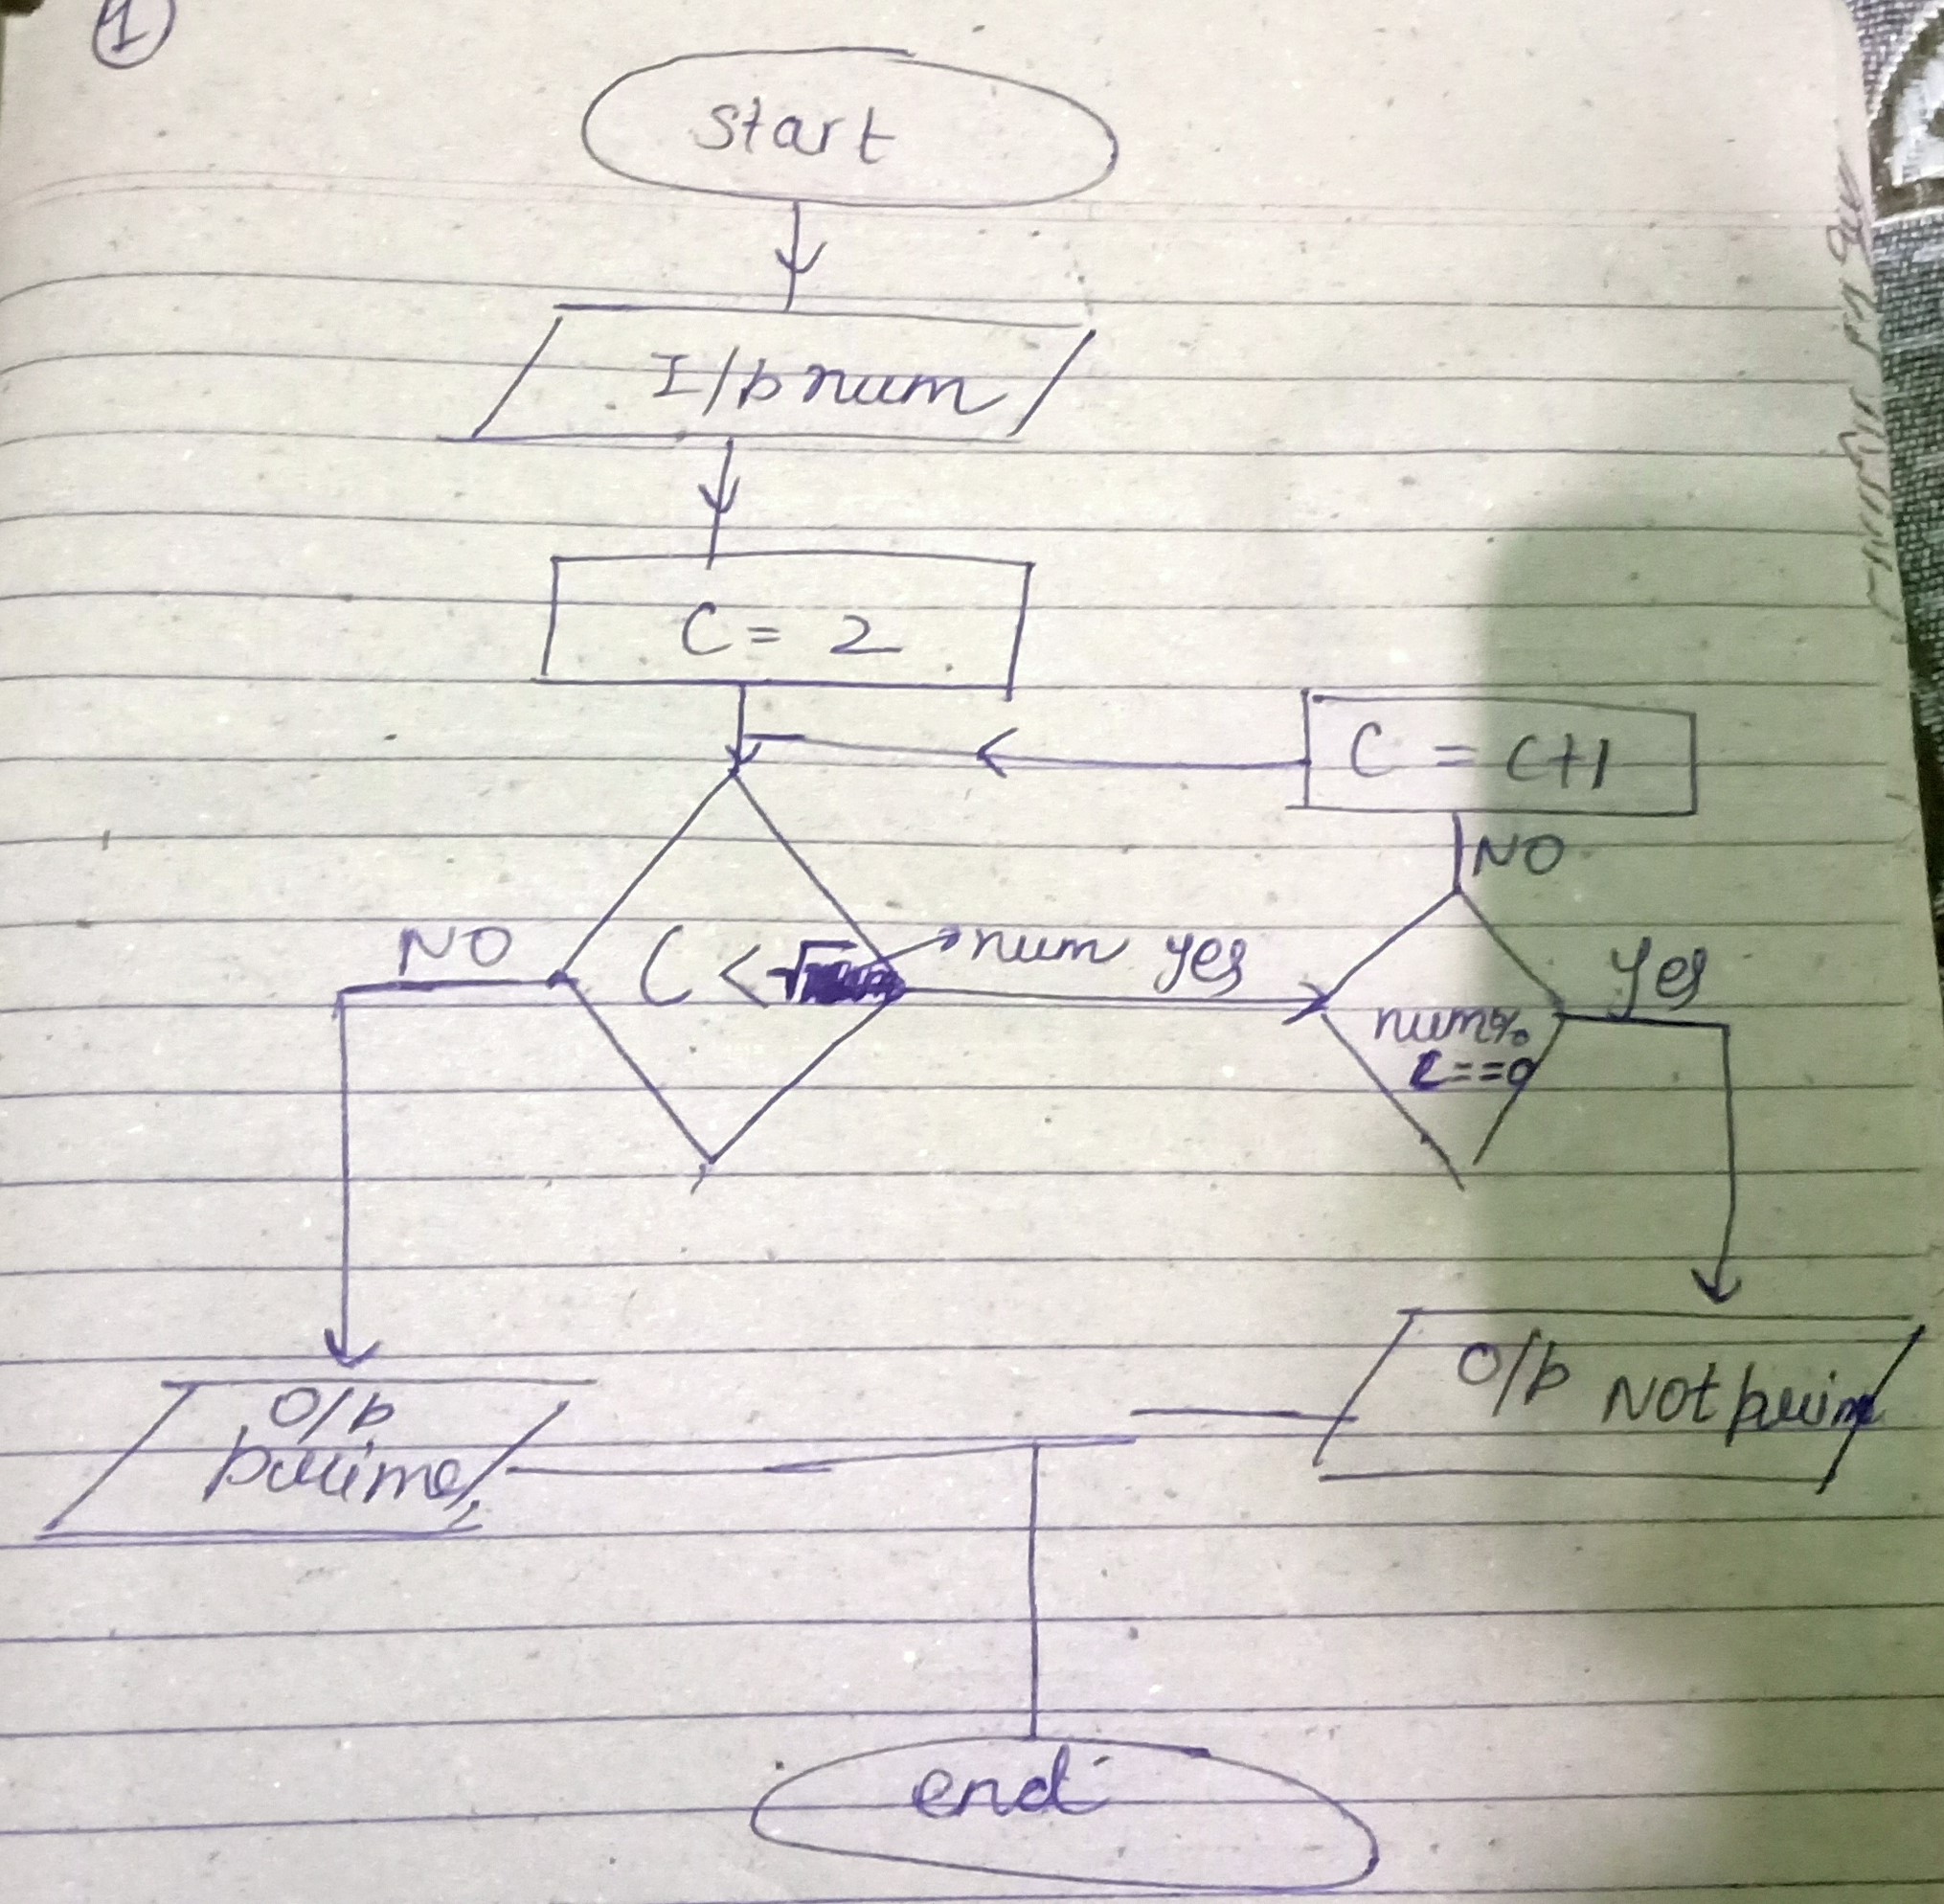 1
start
I/p num
C = 2
C = C+1
NO
NO
C < √ num yes
yes
num%
C==0
O/p
prime
O/p Not prime
end